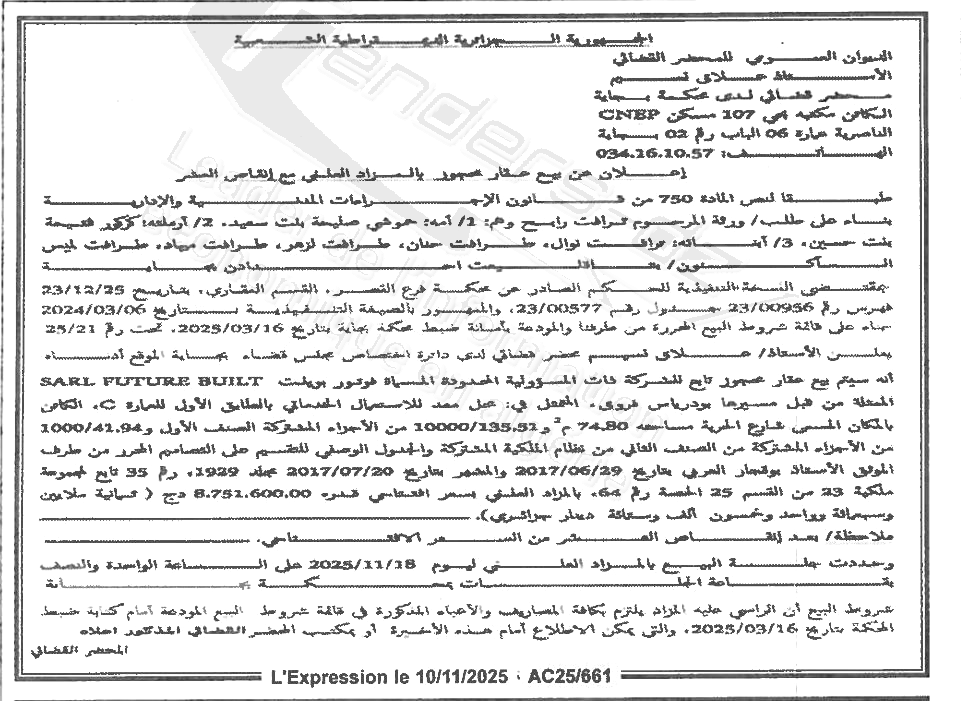 الجمهورية الجزائرية الديمقراطية الشعبية
الديوان العمومي للمحضر القضائي
الأستاذ علاق نسيم
محضر قضائي لدى محكمة بجاية
الكائن مكتبه بحي 107 مسكن CNEP
الناصرية عمارة 06 الباب رقم 02 بجاية
الهاتف: 034.16.10.57
إعلان عن بيع عقار محجوز بالمزاد العلني مع إنقاص العشر
طبقا لنص المادة 750 من قانون الإجراءات المدنية والإدارية
بناء على طلب/ ورثة المرحوم طرافت رابح وهم: 1/ أمه: حوشي صليحة بنت سعيد. 2/ أرملته: كركور فتيحة
بنت حسين. 3/ أبنائه: طرافت نوال، طرافت حنان، طرافت لزهر، طرافت ميهاد، طرافت لميس
الساكنون/ احدادن بجاية
بمقتضى النسخة التنفيذية للحكم الصادر عن محكمة فرع القصر، القسم العقاري، بتاريخ 23/12/25
فهرس رقم 23/00956 جدول رقم 23/00577، والممهور بالصيغة التنفيذية بتاريخ 2024/03/06
بناء على قائمة شروط البيع المحررة من طرفنا والمودعة بأمانة ضبط محكمة بجاية بتاريخ 2025/03/16، تحت رقم 25/21
يعلن الأستاذ/ علاق نسيم محضر قضائي لدى دائرة اختصاص مجلس قضاء بجاية الموقع أدناه
أنه سيتم بيع عقار محجوز تابع للشركة ذات المسؤولية المحدودة المسماة فوتور بويلت SARL FUTURE BUILT
الممثلة من قبل مسيرها بودرياس فروق، المتمثل في: محل معد للاستعمال الخدماتي بالطابق الأول للعمارة C، الكائن
بالمكان المسمى شارع الحرية مساحته 74.80 م² و10000/135.51 من الأجزاء المشتركة الصنف الأول و1000/41.94
من الأجزاء المشتركة من الصنف الثاني من نظام الملكية المشتركة والجدول الوصفي للتقسيم على التصاميم المحرر من طرف
الموثق الأستاذ بوقجار العربي بتاريخ 2017/06/29 والمشهر بتاريخ 2017/07/20 مجلد 1929، رقم 35 تابع لمجموعة
ملكية 23 من القسم 25 الحصة رقم 64، بالمزاد العلني بسعر افتتاحي قدره 8.751.600.00 دج ( ثمانية ملايين
وسبعمائة وواحد وخمسون ألف وستمائة دينار جزائري).
ملاحظة/ بعد إنقاص العشر من السعر الافتتاحي.
وحددت جلسة البيع بالمزاد العلني ليوم 2025/11/18 على الساعة الواحدة والنصف
بقاعة الجلسات بمحكمة بجاية
شروط البيع أن الراسي عليه المزاد يلتزم بكافة المصاريف والأعباء المذكورة في قائمة شروط البيع المودعة أمام كتابة ضبط
المحكمة بتاريخ 2025/03/16، والتي يمكن الاطلاع أمام هذه الأخيرة أو بمكتب المحضر القضائي المذكور اعلاه
المحضر القضائي
L'Expression le 10/11/2025 : AC25/661